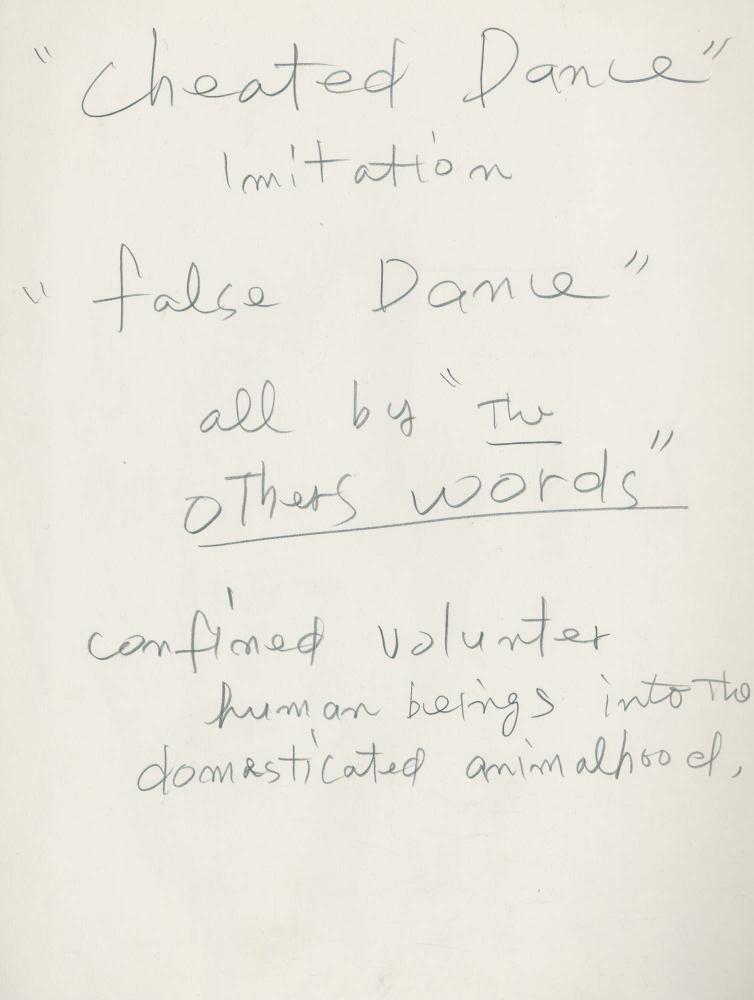 "Cheated Dance"
Imitation
"false Dance"
all by "The
others words"
confined volunter
human beings into The
domesticated animalhood,